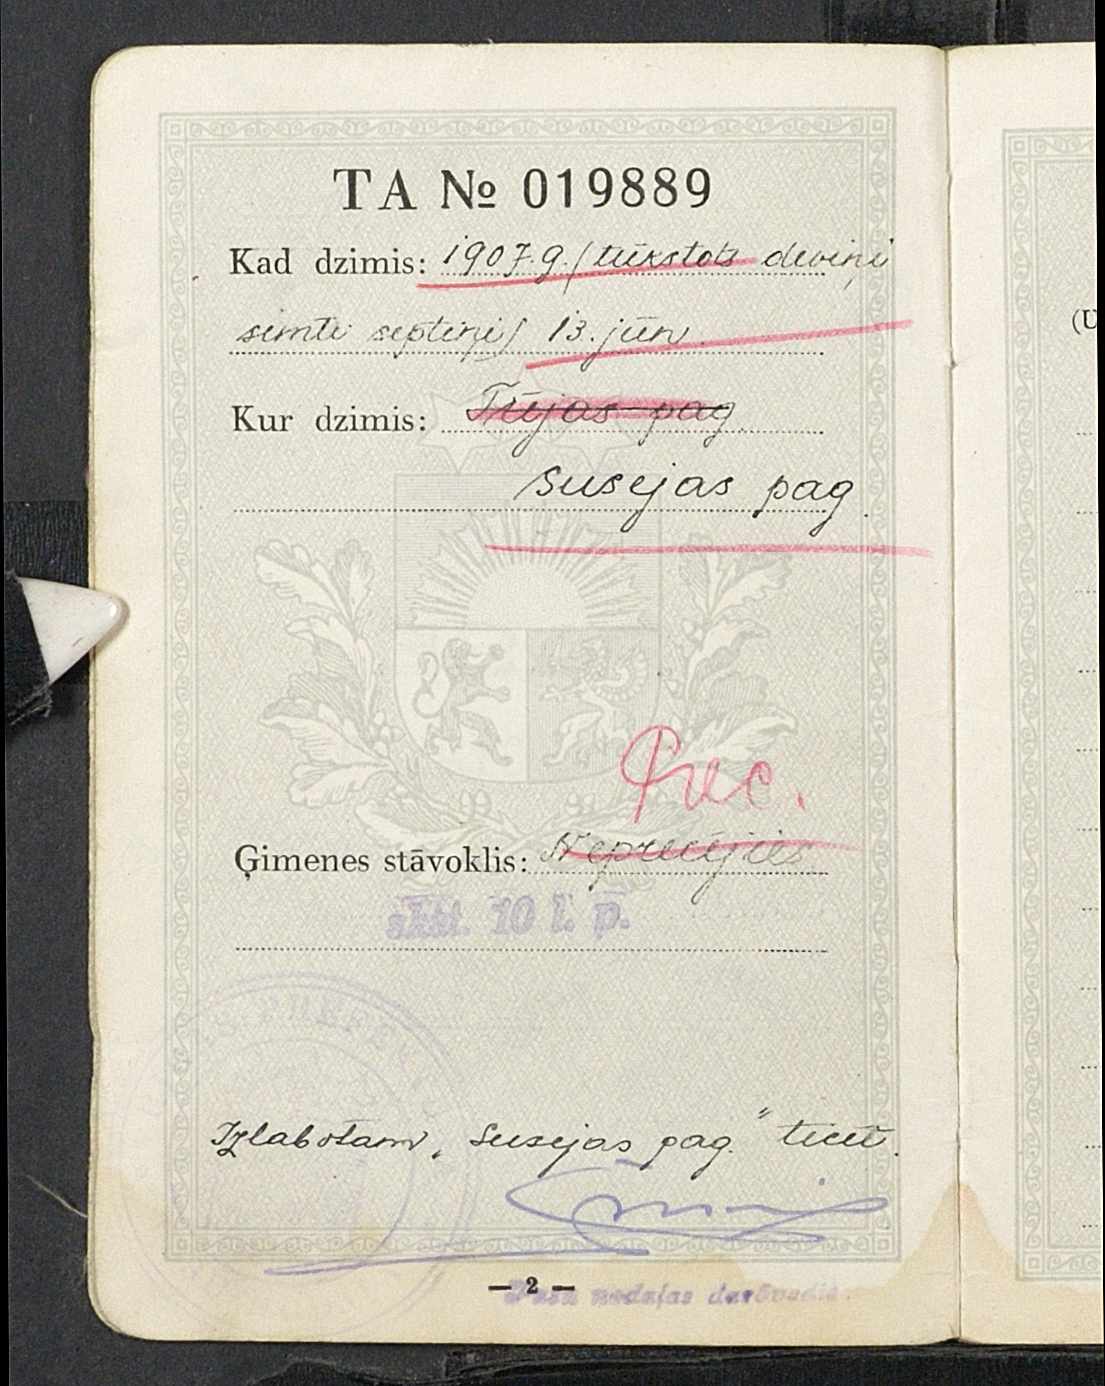 TA № 019889
Kad dzimis: 1907.g. /tūkstots deviņi
simti septiņi/ 13. jūn.
Kur dzimis: Tūjas pag.
Susejas pag.
Prec.
Ģimenes stāvoklis: Neprecējies
skat. 10 l. p.
S. PREFEK
Izlabotam „Susejas pag.” ticēt.
— 2 —
Pasu nodaļas darbvedis.
(U